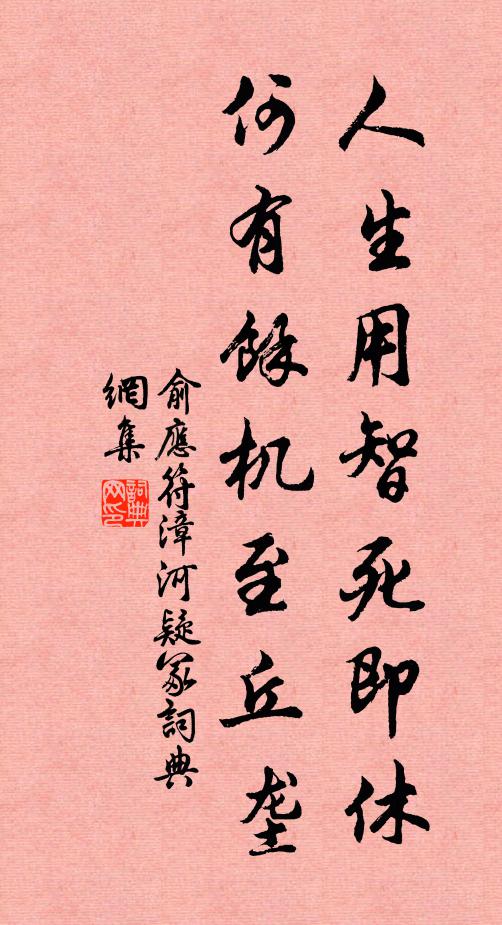 人生用智死即休
何有餘机至丘垄
俞應符漳河疑冢詞典
網集
詞典
网印